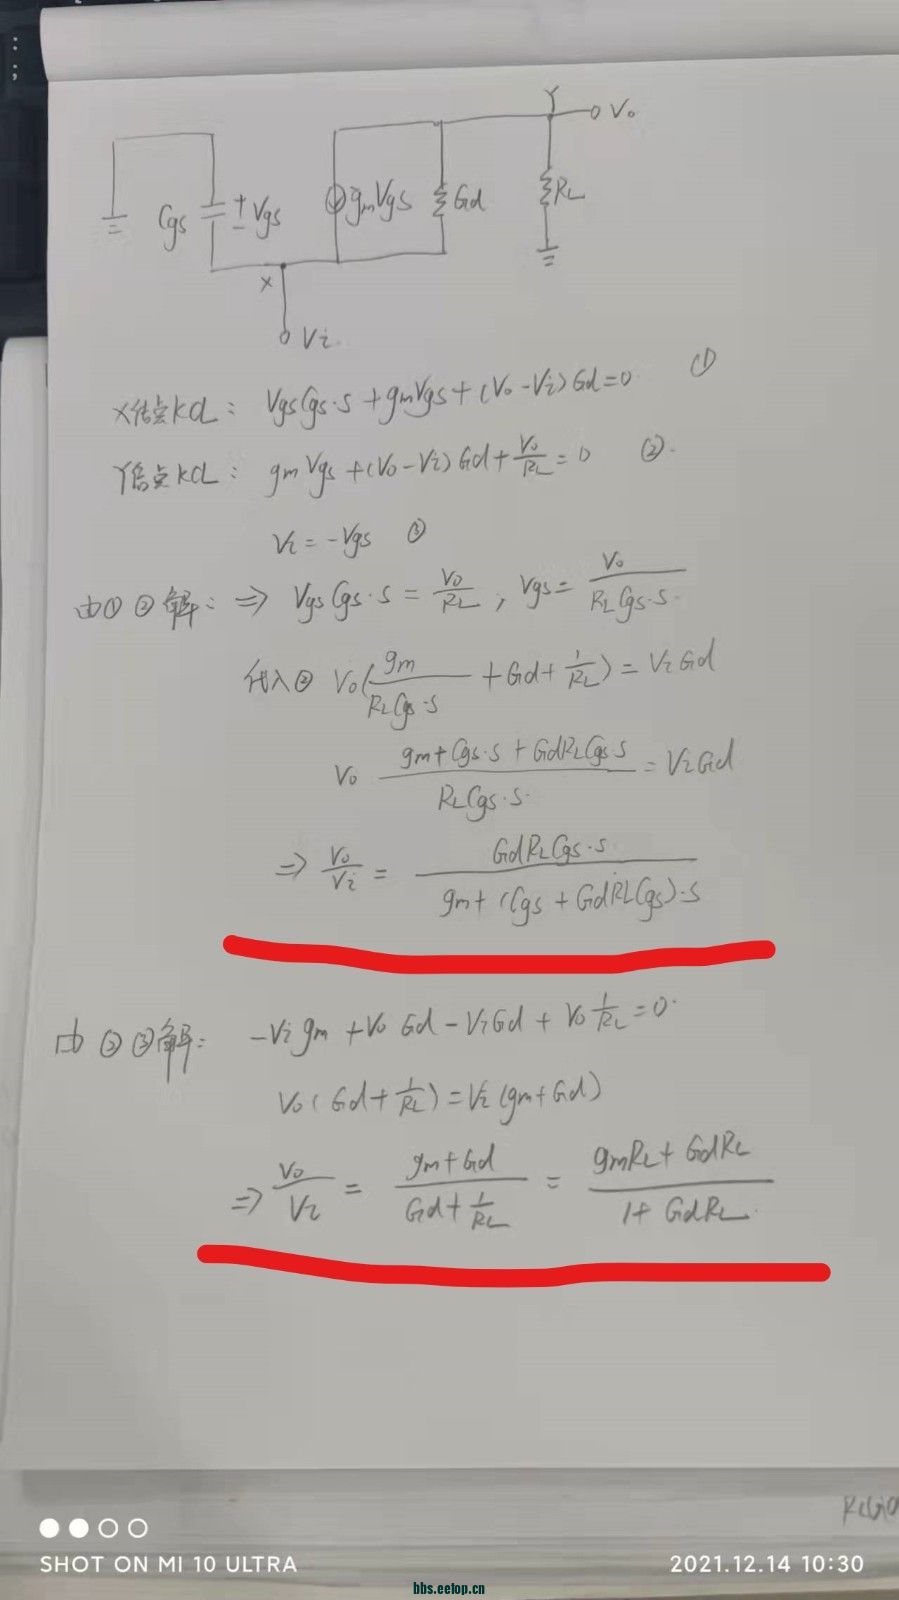 Y
Vo
Cgs
+
-
Vgs
gmVgs
Gd
RL
X
Vi
X结点KCL: VgsCgs·S + gmVgs + (Vo-Vi)Gd=0 ①
Y结点KCL: gmVgs + (Vo-Vi)Gd + Vo/RL = 0 ②.
Vi = -Vgs ③
由①②解: ⇒ VgsCgs·S = Vo/RL, Vgs = Vo/RLCgs·S
代入② Vo(gm/RLCgs·S + Gd + 1/RL) = ViGd
Vo gm+Cgs·S+GdRLCgs·S/RLCgs·S = ViGd
⇒ Vo/Vi = GdRLCgs·S/gm+(Cgs+GdRLCgs)·S
由②③解: -Vigm + VoGd - ViGd + Vo1/RL = 0
Vo(Gd+1/RL) = Vi(gm+Gd)
⇒ Vo/Vi = gm+Gd/Gd+1/RL = gmRL+GdRL/1+GdRL
SHOT ON MI 10 ULTRA
2021.12.14 10:30
bbs.eetop.cn